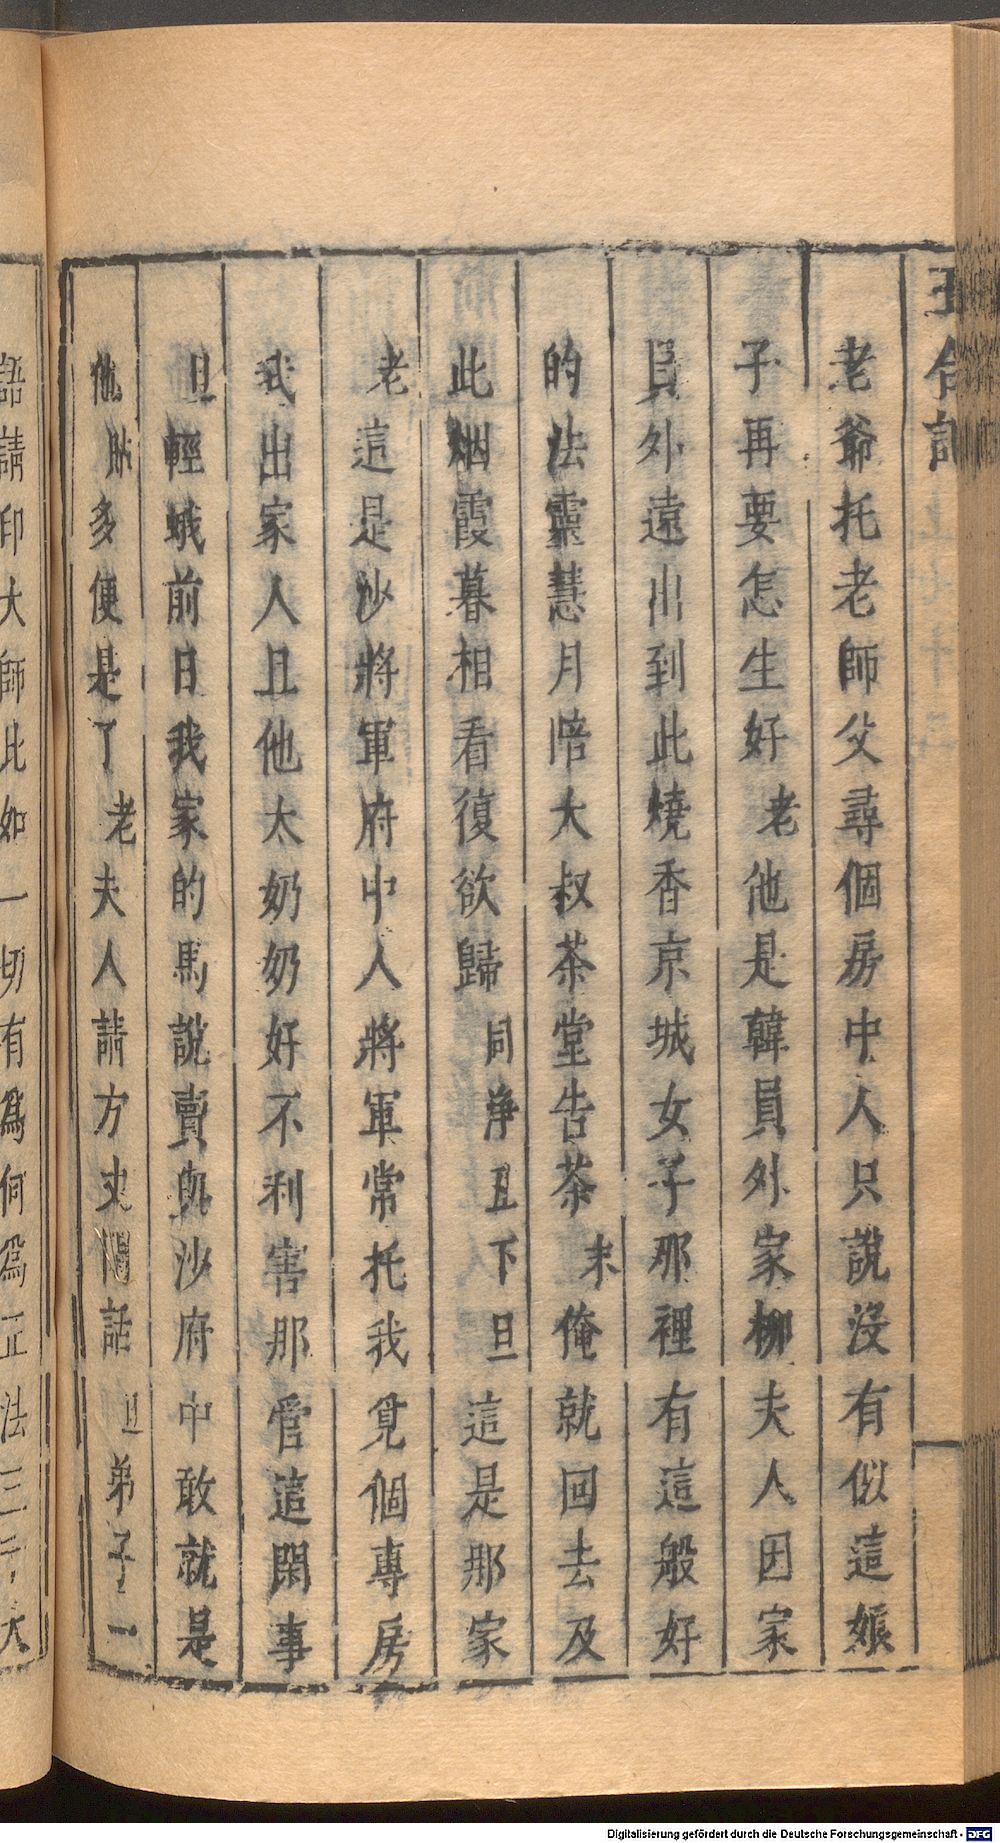 玉合記
老爺托老師父尋個房中人只說沒有似這娘
子再要怎生好老他是韓員外家柳夫人因家
員外遠出到此燒香京城女子那裡有這般好
的法靈慧月陪大叔茶堂告茶末俺就回去及
此烟霞暮相看復欲歸同淨丑下旦這是那家
老這是沙將軍府中人將軍常托我覓個專房
我出家人且他太奶奶好不利害那管這閑事
旦輕蛾前日我家的馬說賣與沙府中敢就是
他貼多便是了老夫人請方丈閒話旦弟子一
語請印大師比如一切有為何為正法三千大
Digitalisierung gefördert durch die Deutsche Forschungsgemeinschaft - DFG